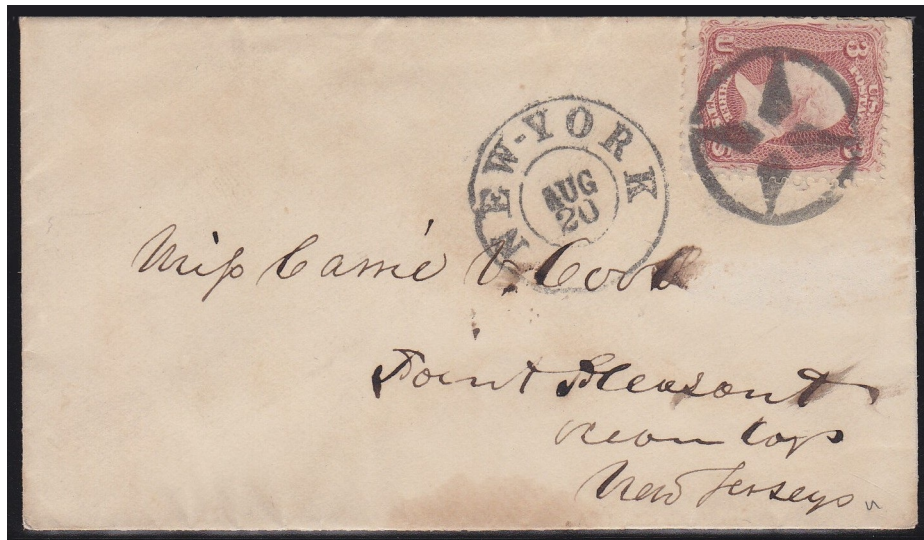 NEW-YORK
AUG
20
U 3
U.S. POSTAGE
3
Miss Carrie V. Cook
Point Pleasant
New Jersey